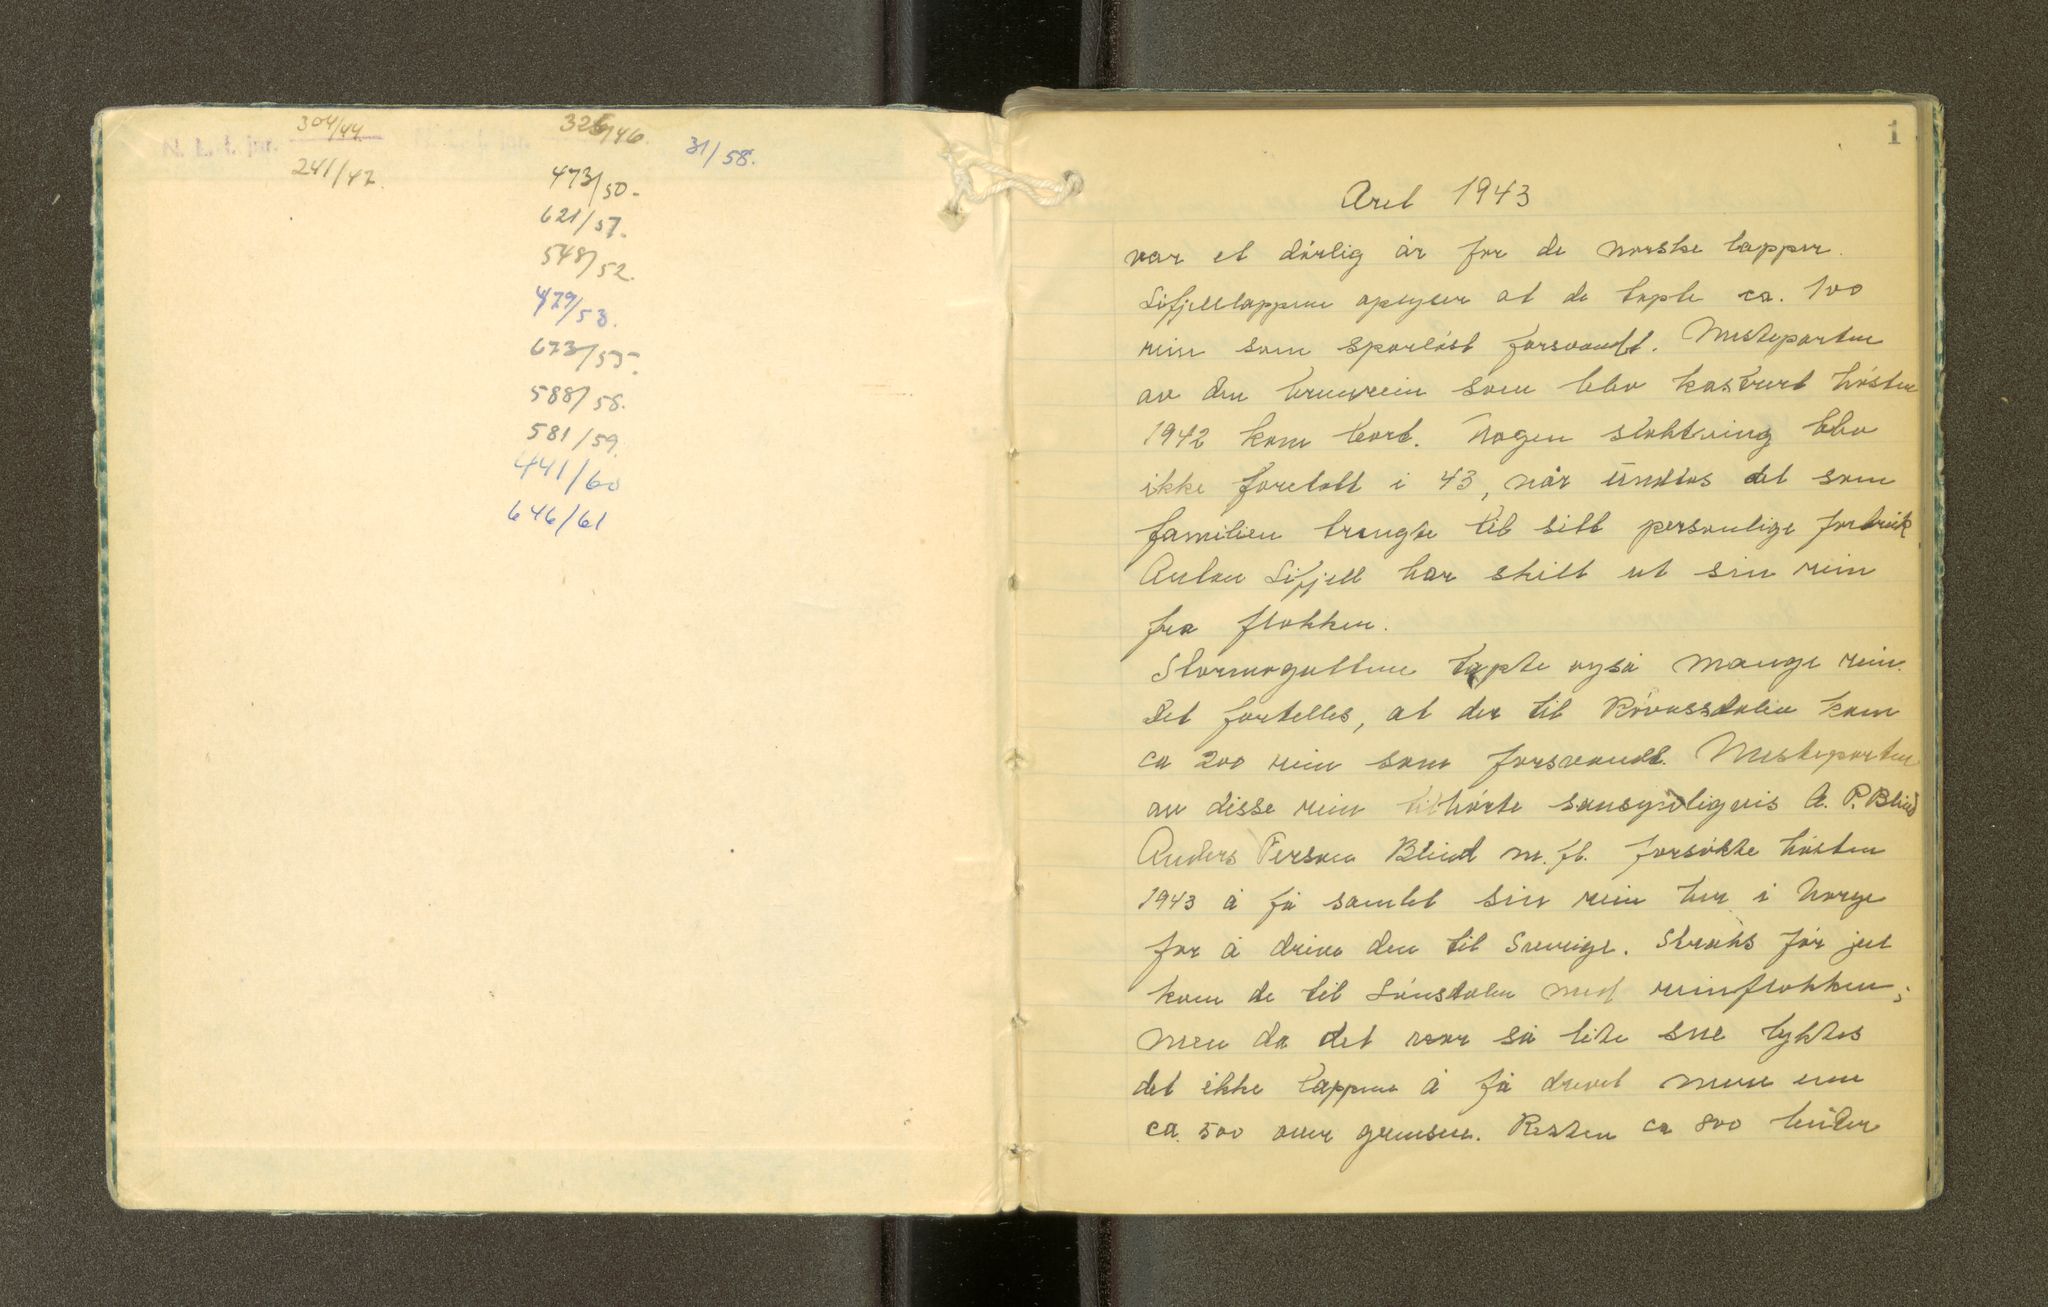 N. L. t. jnr. 304/44
241/47.
326/46.
31/58.
473/50.
621/51.
548/52.
479/53.
673/55.
588/58.
581/59.
441/60
646/61
1
Året 1943
var et dårlig år for de norske lapper.
Lifjelllappene opgyver at de tapte ca. 100
rein som sporløst forsvandt. Mesteparten
av den brunrein som blev kastrert høsten
1942 kom bort. Nogen slaktning blev
ikke foretatt i 43, når undtas det som
familien trengte til sitt personlige forbruk
Anton Lifjell har skilt ut sin rein
fra flokken.
Stormogutten tapte også mange rein.
Det fortelles, at der til Røvassdalen kom
ca 200 rein som forsvandt. Mesteparten
av disse rein tilhørte sansynligvis A. P. Blind
Anders Persson Blind m. fl. forsøkte høsten
1943 å få samlet sin rein her i Norge
for å drive den til Sverige. Straks før jul
kom de til Lønsdalen med reinflokken;
men da det var så lite sne lyktes
det ikke lappene å få drevet mere enn
ca. 500 over grensen. Resten ca 800 beiter